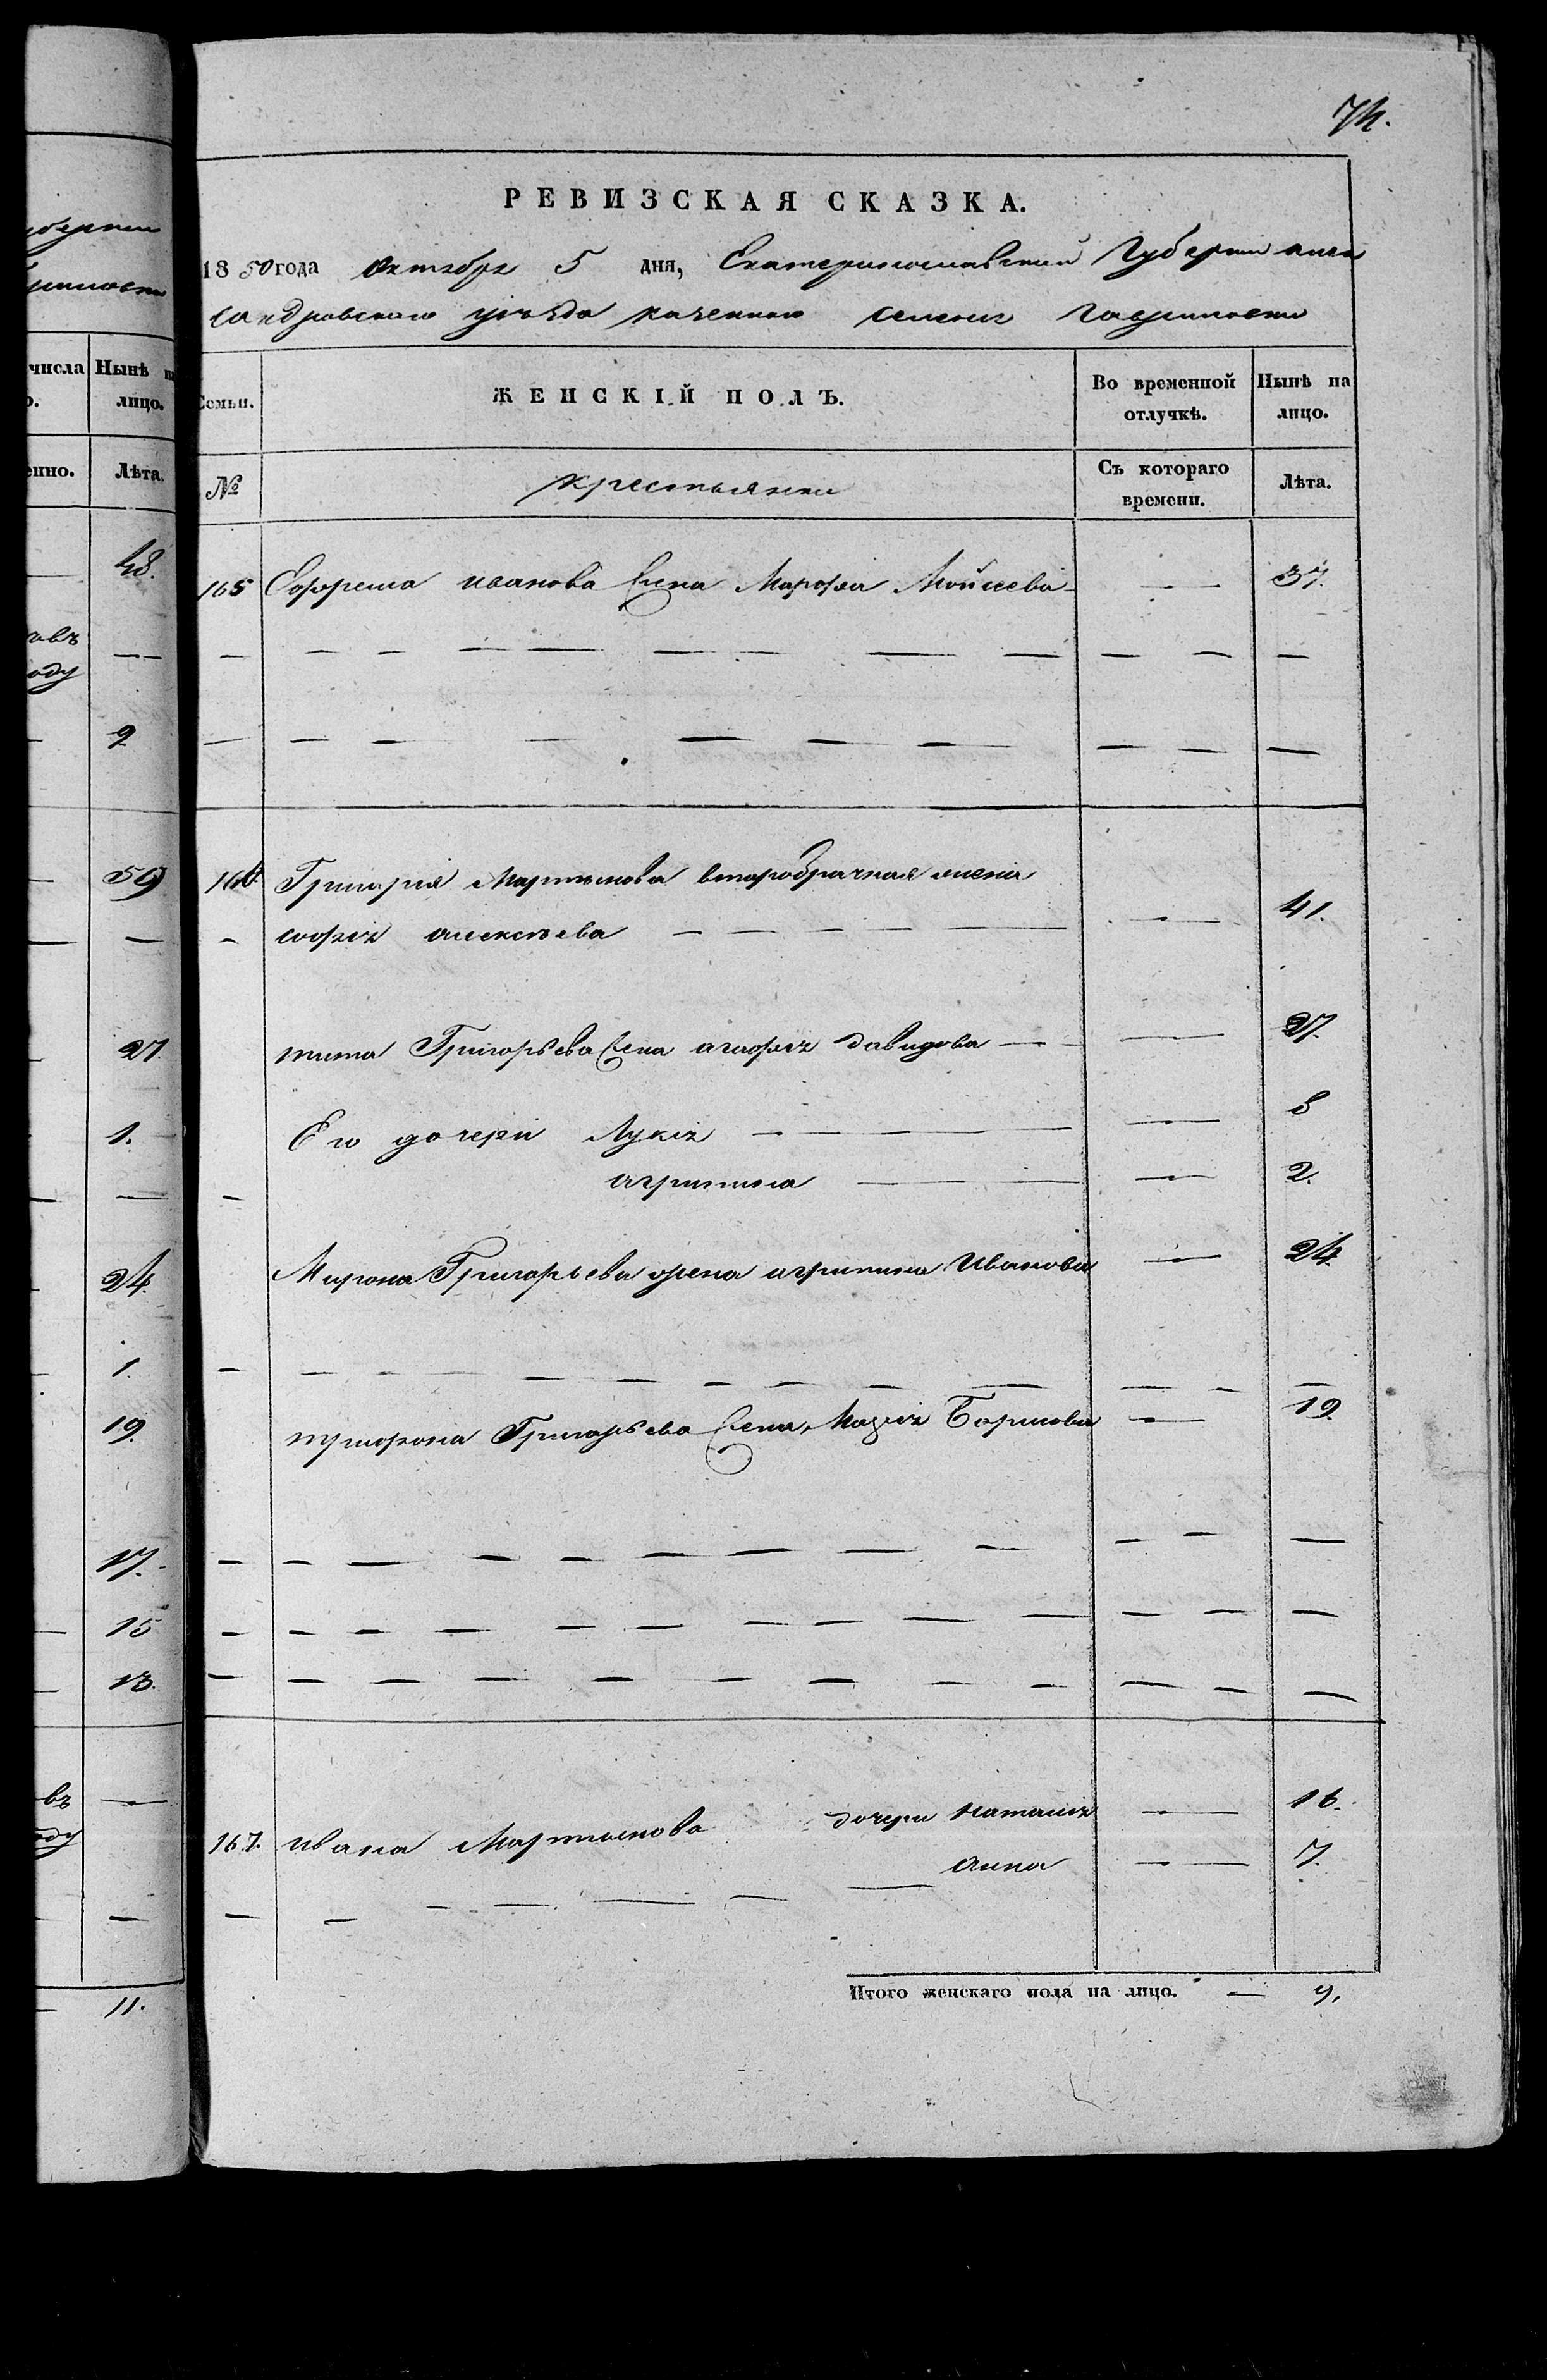 74.
РЕВИЗСКАЯ СКАЗКА.
1850 года октября 5 дня, Екатеринославской Губернии алек
сандровского уезда казенного селения Гавриловки
Семьи.
ЖЕНСКІЙ ПОЛЪ.
Во временной отлучкѣ.
Нынѣ на лицо.
№
крестьянки
Съ котораго времени.
Лѣта.
165 Ефрема иванова жена Марфа Мойсева — 37.
166 Григория Мартынова второбрачная жена
софия алексеева — 41.
тита Григорьева жена агафия давидова — 27.
Его дочери Лукия —
агрипина — 2.
Мирона Григорьева жена агрипина Иванова — 24.
трифона Григорьева жена Мария Борисова — 19.
167. ивана Мартынова дочери наталия — 16.
анна — 7.
Итого женскаго пола на лицо. — 9.
числа
Нынѣ
лицо.
Лѣта.
48.
9
59
27.
1.
24.
1.
19.
17.
15
13.
въ
оду
11.